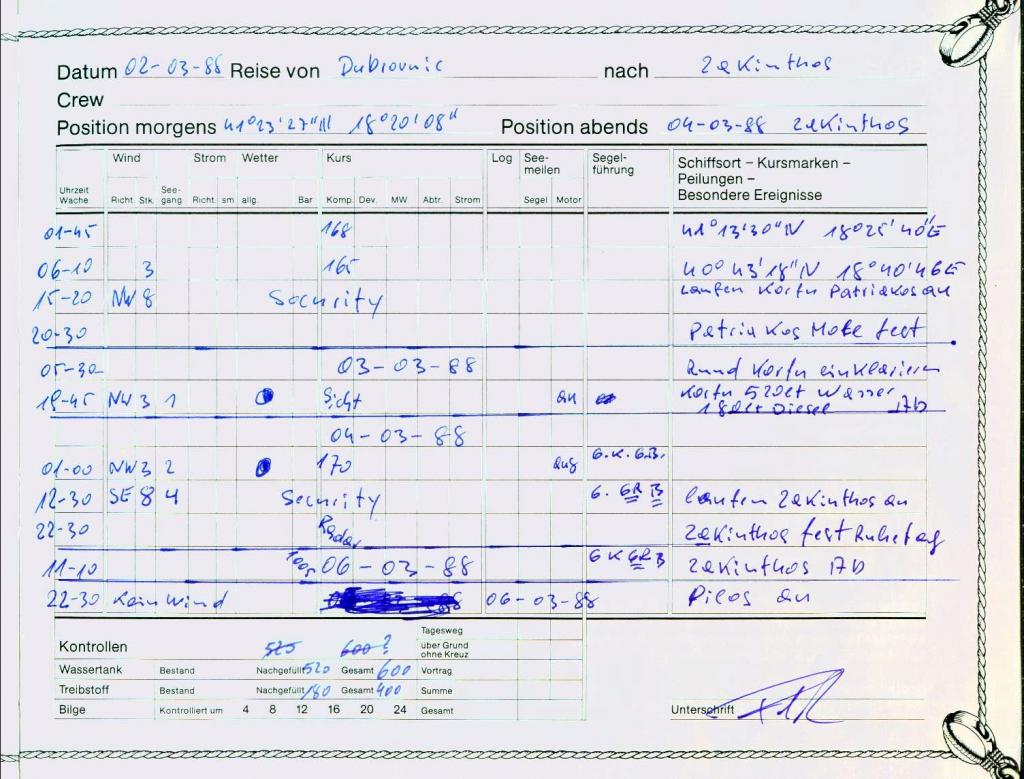 Datum 02-03-88 Reise von Dubrovnic nach Zakinthos
Crew
Position morgens 41°23'27"N 18°20'08" Position abends 04-03-88 Zakinthos
Wind Strom Wetter Kurs Log See-meilen Segel-führung Schiffsort – Kursmarken – Peilungen – Besondere Ereignisse
Uhrzeit Wache Richt. Stk. See-gang Richt. sm allg. Bar Komp. Dev. MW Abtr. Strom Segel Motor
01-45 168 41°13'30"N 18°25'40"E
06-10 3 165 40°43'18"N 18°40'46E
15-20 NW 8 Security Laufen Korfu Patriakos an
20-30 Patria Kos Mole fest
05-30 03-03-88 Rund Korfu einklarieren
18-45 NW 3 1 Sicht an Korfu 520lt Wasser
180lt Diesel
04-03-88
01-00 NW 3 2 170 aus G.K.GB.
12-30 SE 8 4 Security G. GR B laufen Zakinthos an
22-30 Radar Zakinthos fest Ruhetag
11-10 06-03-88 G K GR B Zakinthos
22-30 Kein Wind 06-03-88 Pilos an
Kontrollen 525 600? Tagesweg über Grund ohne Kreuz
Wassertank Bestand Nachgefüllt 520 Gesamt 600 Vortrag
Treibstoff Bestand Nachgefüllt 180 Gesamt 400 Summe
Bilge Kontrolliert um 4 8 12 16 20 24 Gesamt
Unterschrift